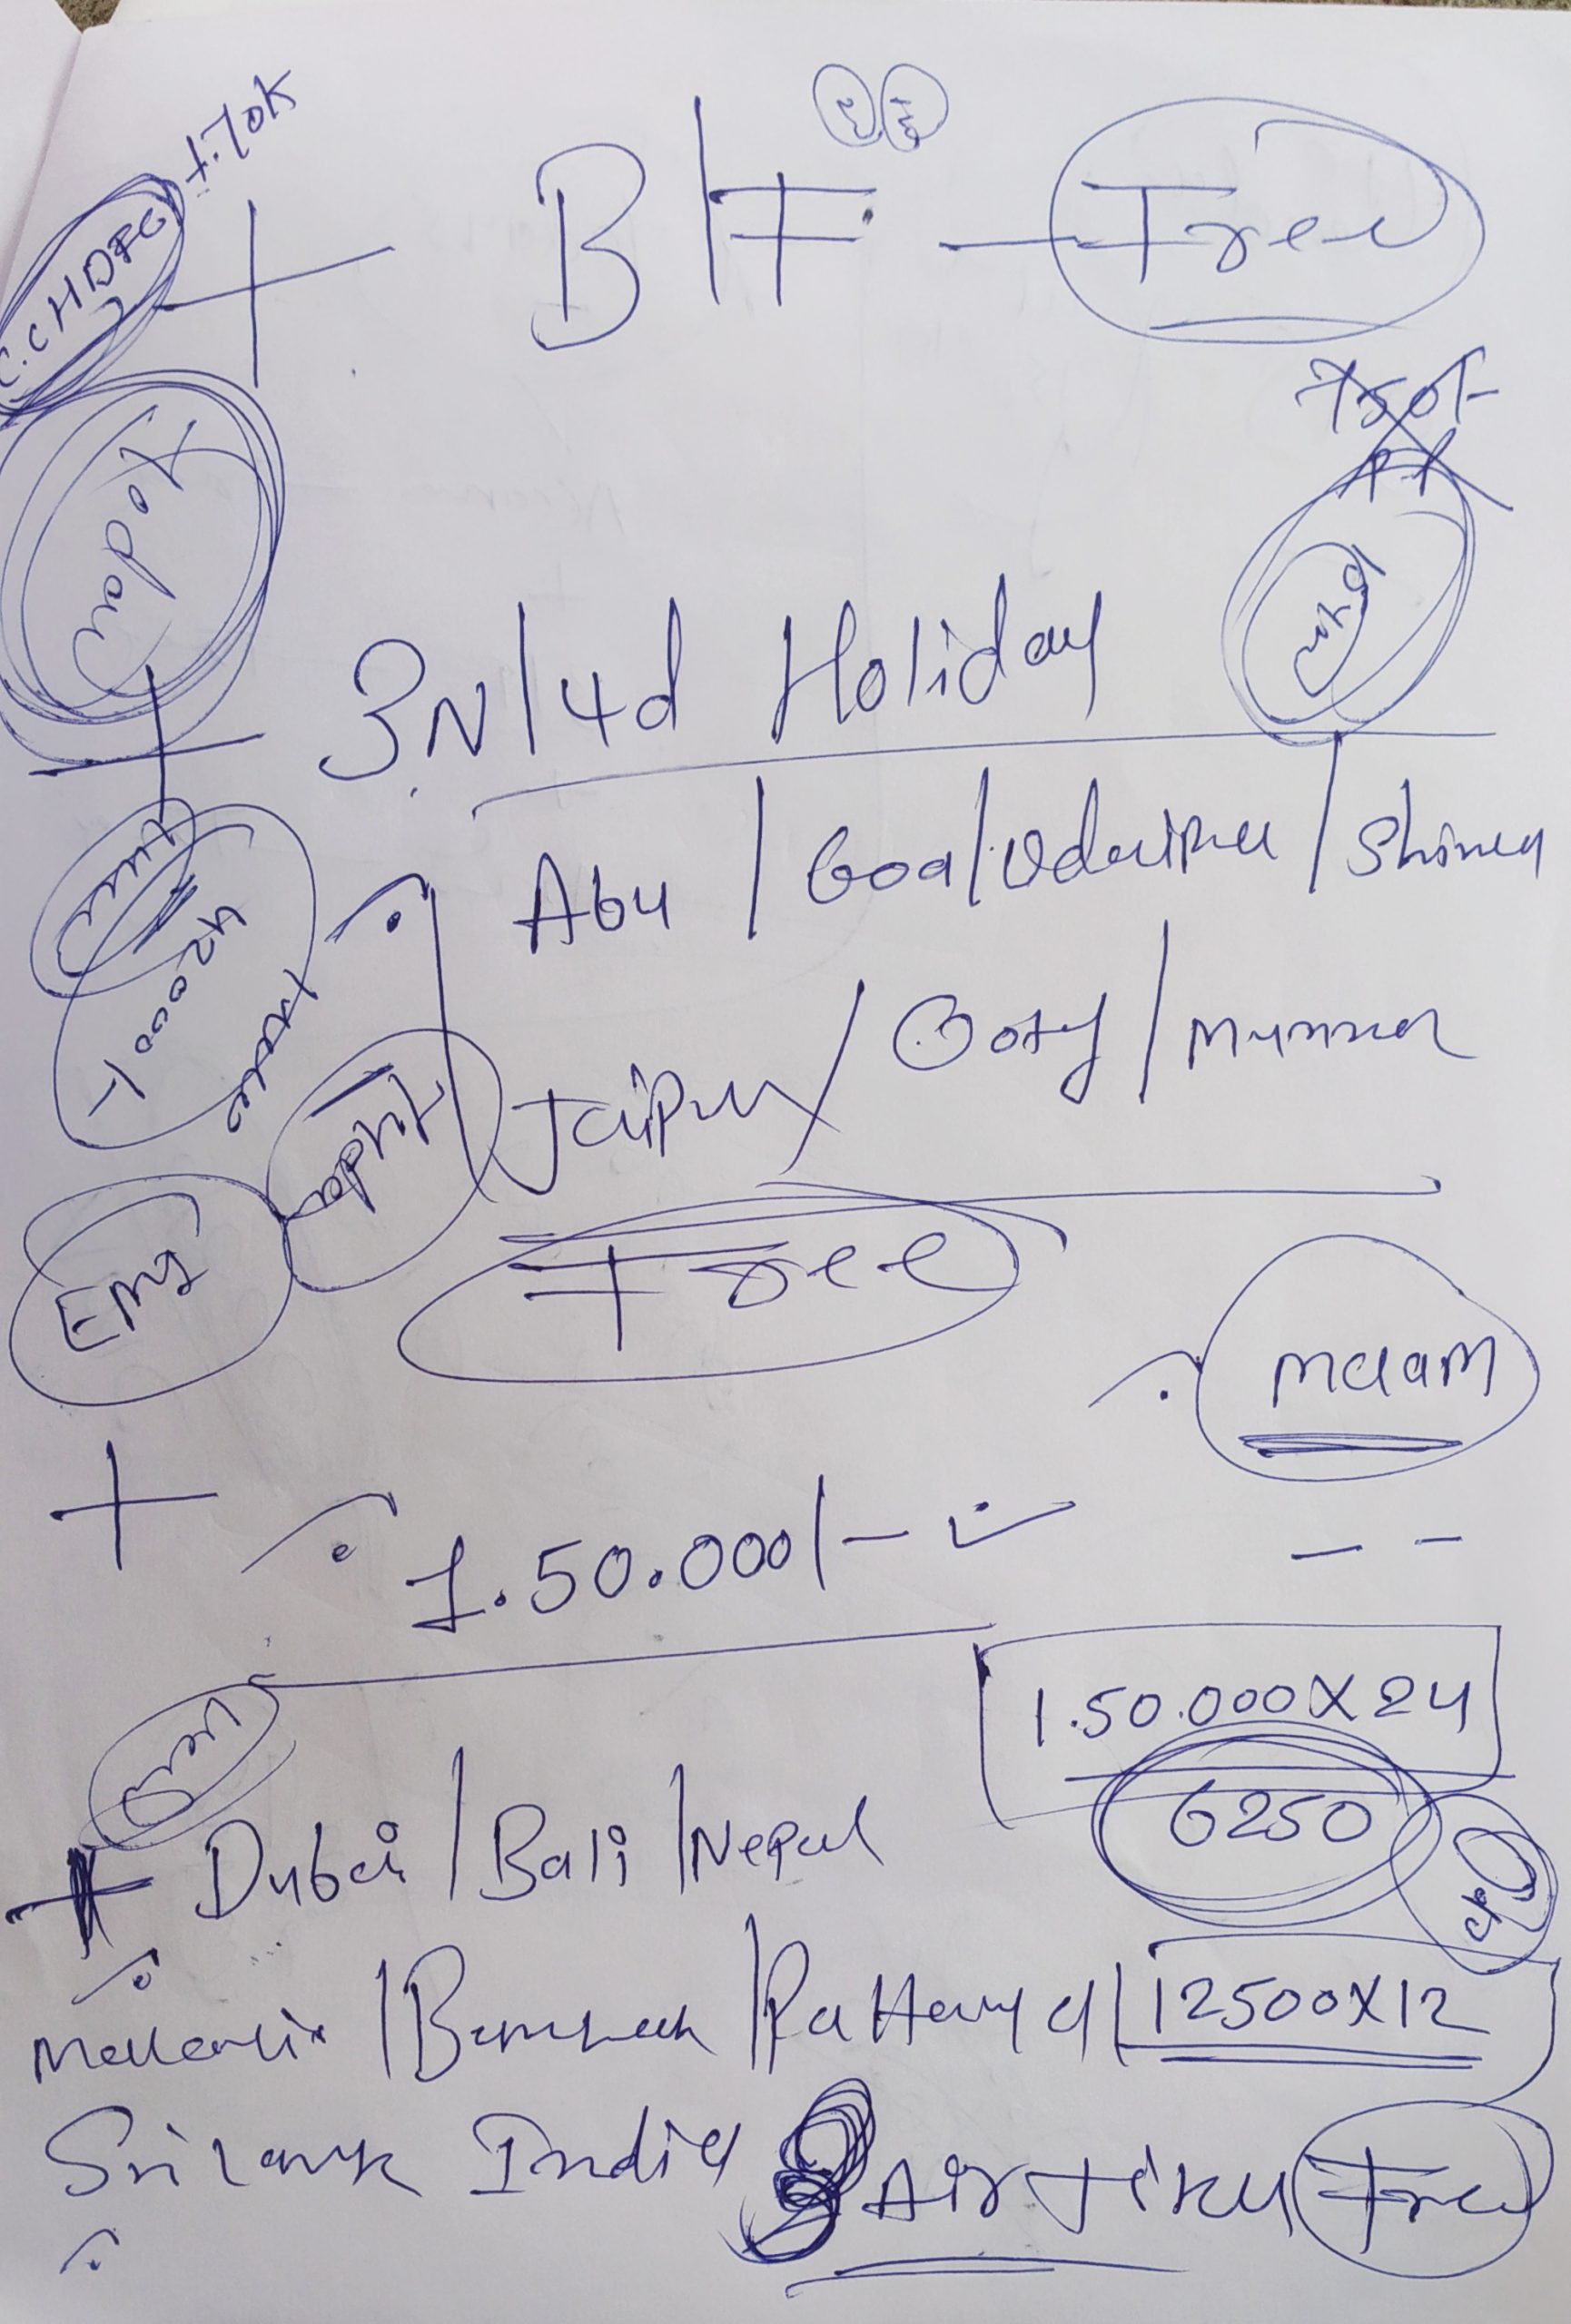 +.70K
C.CHDFC
+ B/F - Free
750/-
P.P
Today
+ 3N/4d Holiday
Abu / Goa / Udaipur / Shimla
42000/-
Jaipur / Ooty / Munnar
Free
EMI
Maam
+ 1.50.000/-
1.50.000 X 24
6250
+ Dubai / Bali / Nepal
/ Pattaya / 12500X12
Srilank India 8 Air Ticku Free